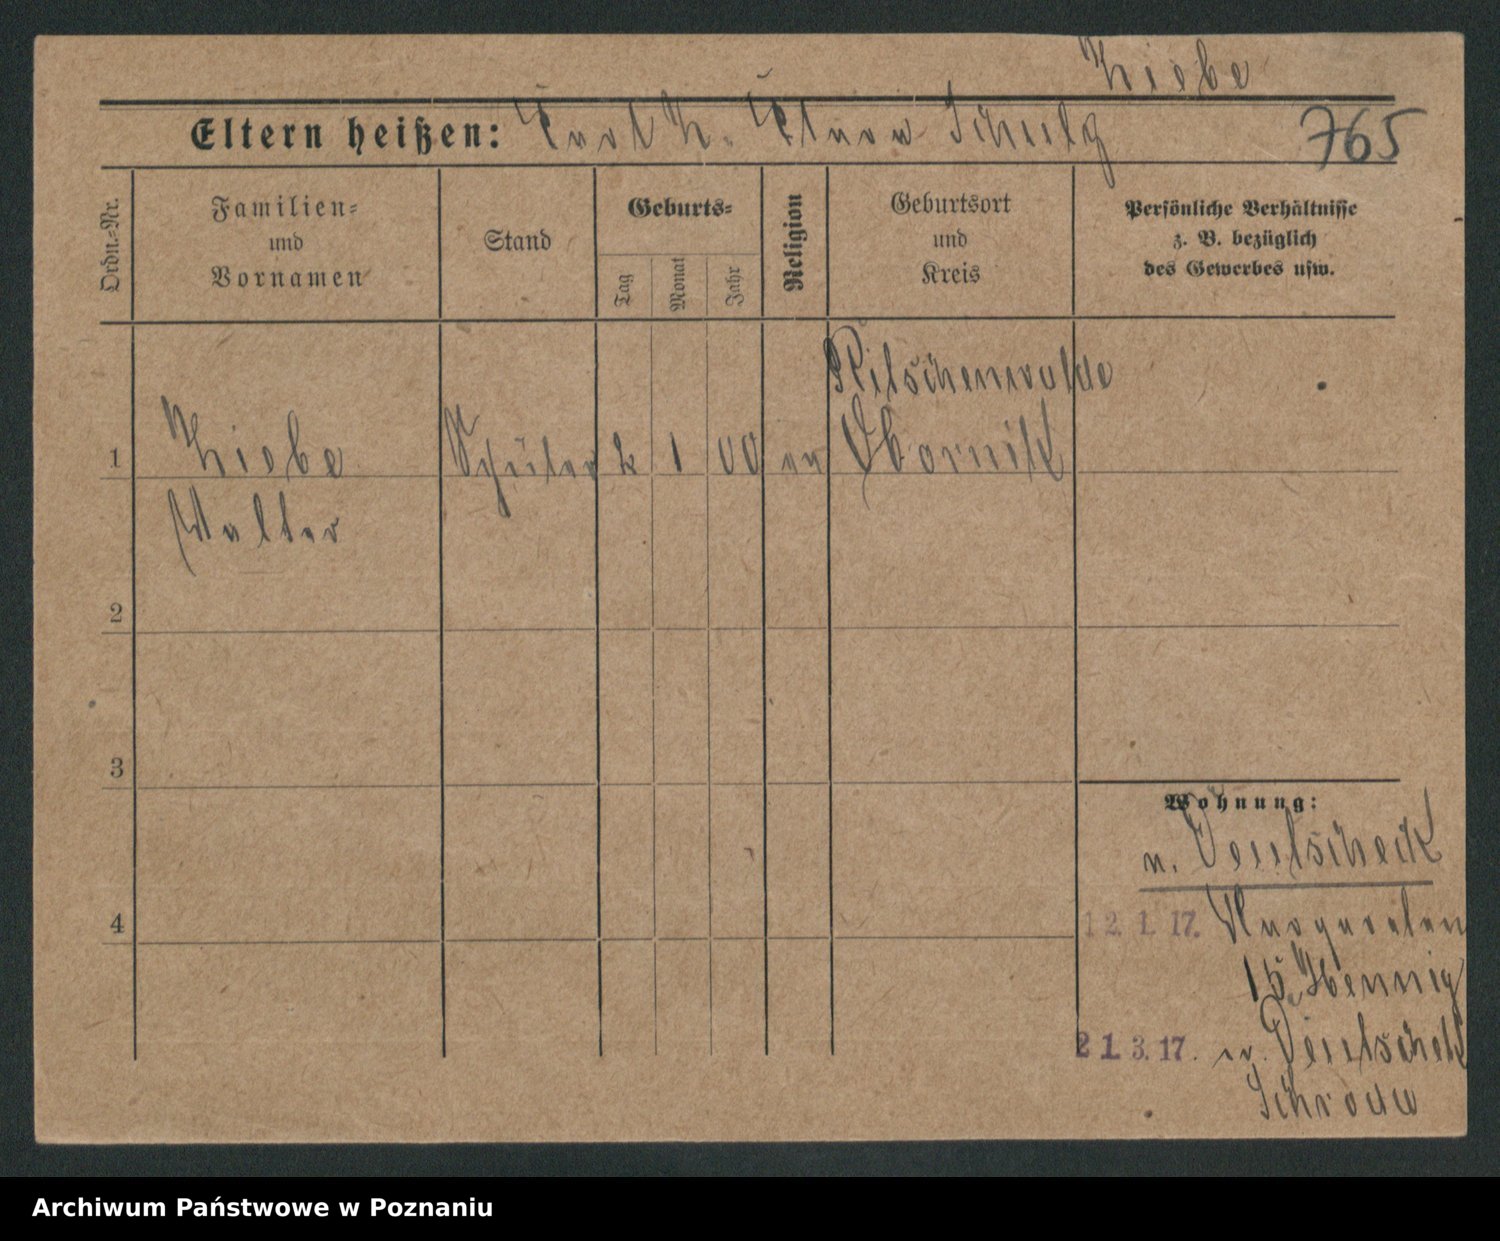 Thiebe
Eltern heißen: Karl Th. Klara Schulz
765
Ordn.=Nr.
Familien=
und
Vornamen
Stand
Geburts=
Tag
Monat
Jahr
Religion
Geburtsort
und
Kreis
Persönliche Verhältnisse
z. B. bezüglich
des Gewerbes usw.
Ritschenwalde
1 Thiebe Schüler 2 1 00 ev Obornik
Walter
2
3
4
Wohnung:
n. Deutscheck
12. 1. 17. Margareten
15 Hennig
21. 3. 17. n. Deutscheck
Schroda
Archiwum Państwowe w Poznaniu